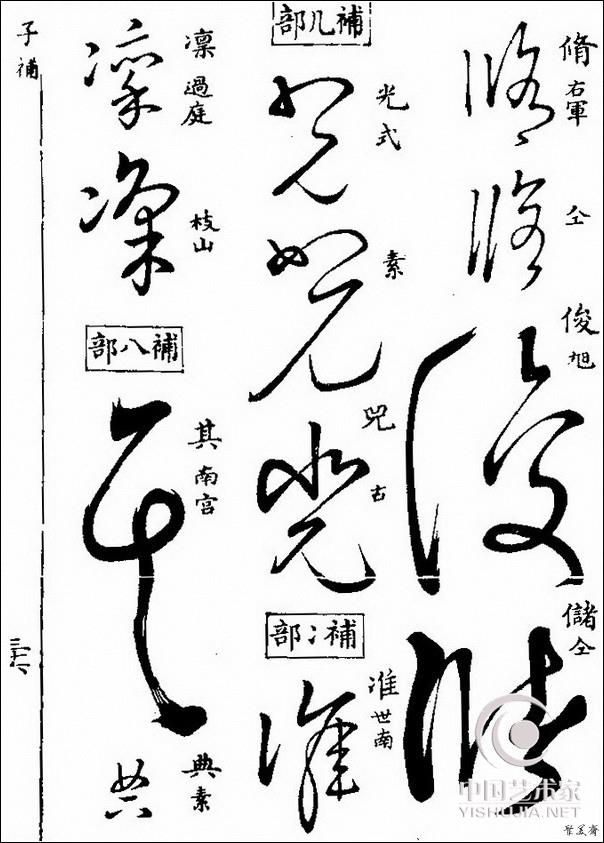 脩 右軍
仝
俊 旭
儲 仝
補几部
光 式
素
兕 古
補冫部
准 世南
凛 過庭
枝山
補八部
其 南宫
典 素
子補
三十六
中国艺术家
YISHUJIA.NET